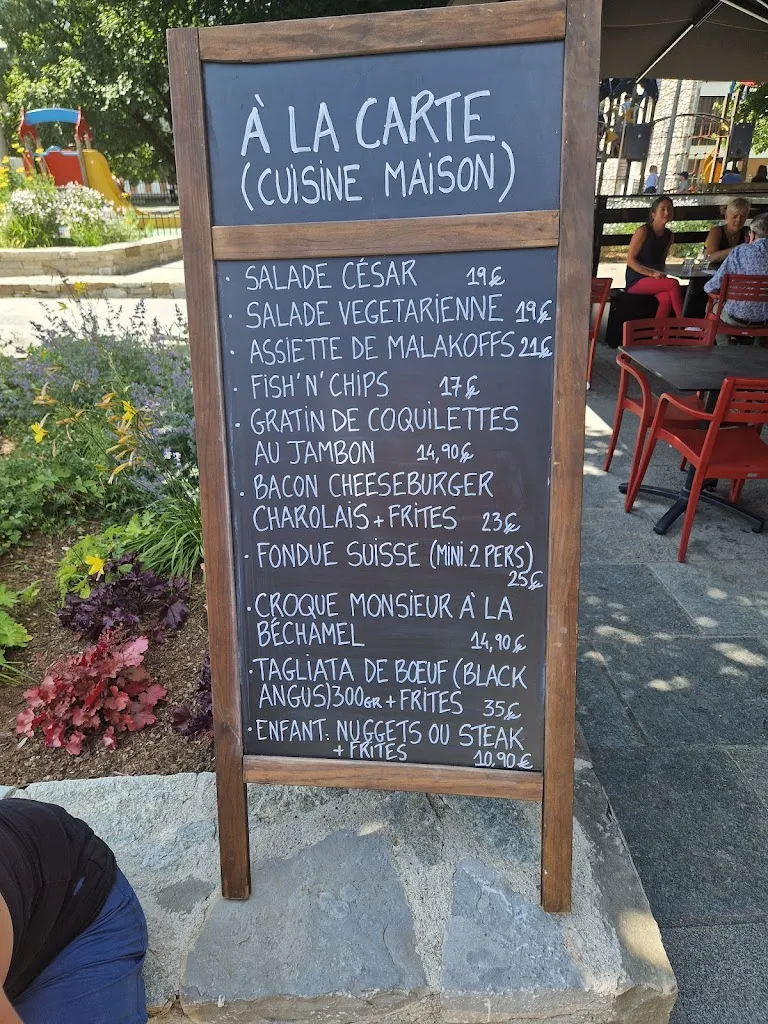 À LA CARTE
(CUISINE MAISON)
· SALADE CÉSAR 19€
· SALADE VEGETARIENNE 19€
· ASSIETTE DE MALAKOFFS 21€
· FISH'N'CHIPS 17€
· GRATIN DE COQUILETTES
AU JAMBON 14,90€
· BACON CHEESEBURGER
CHAROLAIS + FRITES 23€
· FONDUE SUISSE (MINI. 2 PERS)
25€
· CROQUE MONSIEUR À LA
BÉCHAMEL 14,90€
· TAGLIATA DE BOEUF (BLACK
ANGUS) 300GR + FRITES 35€
· ENFANT: NUGGETS OU STEAK
+ FRITES 10,90€